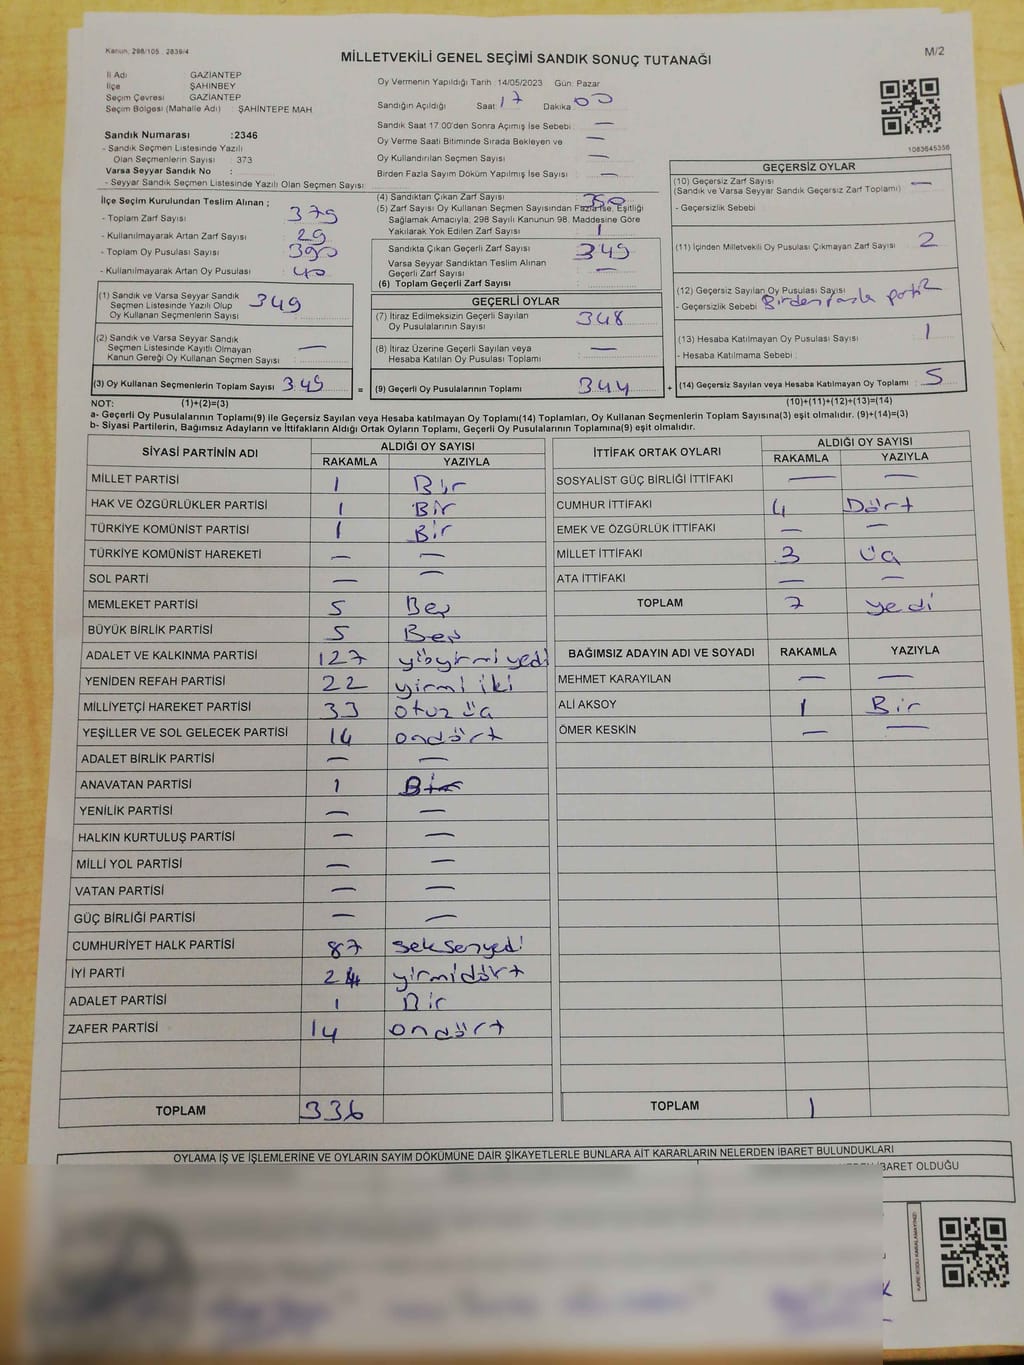 Kanun, 298/105 2839/4
MİLLETVEKİLİ GENEL SEÇİMİ SANDIK SONUÇ TUTANAĞI
M/2
İl Adı GAZİANTEP
İlçe ŞAHİNBEY
Seçim Çevresi GAZİANTEP
Seçim Bölgesi (Mahalle Adı) : ŞAHİNTEPE MAH
Sandık Numarası :2346
- Sandık Seçmen Listesinde Yazılı
Olan Seçmenlerin Sayısı : 373
Varsa Seyyar Sandık No :
- Seyyar Sandık Seçmen Listesinde Yazılı Olan Seçmen Sayısı :
Oy Vermenin Yapıldığı Tarih : 14/05/2023 Gün: Pazar
Sandığın Açıldığı Saat : 17 Dakika 00
Sandık Saat 17.00'den Sonra Açımış İse Sebebi : —
Oy Verme Saati Bitiminde Sırada Bekleyen ve —
Oy Kullandırılan Seçmen Sayısı —
Birden Fazla Sayım Döküm Yapılmış İse Sayısı : —
1083645356
İlçe Seçim Kurulundan Teslim Alınan ;
- Toplam Zarf Sayısı : 379
- Kullanılmayarak Artan Zarf Sayısı : 29
- Toplam Oy Pusulası Sayısı : 390
- Kullanılmayarak Artan Oy Pusulası : 40
(1) Sandık ve Varsa Seyyar Sandık
Seçmen Listesinde Yazılı Olup
Oy Kullanan Seçmenlerin Sayısı : 349
(2) Sandık ve Varsa Seyyar Sandık
Seçmen Listesinde Kayıtlı Olmayan
Kanun Gereği Oy Kullanan Seçmen Sayısı : —
(3) Oy Kullanan Seçmenlerin Toplam Sayısı : 349 =
(4) Sandıktan Çıkan Zarf Sayısı : 350
(5) Zarf Sayısı Oy Kullanan Seçmen Sayısından Fazla İse, Eşitliği
Sağlamak Amacıyla, 298 Sayılı Kanunun 98. Maddesine Göre
Yakılarak Yok Edilen Zarf Sayısı : 1
Sandıkta Çıkan Geçerli Zarf Sayısı : 349
Varsa Seyyar Sandıktan Teslim Alınan
Geçerli Zarf Sayısı : —
(6) Toplam Geçerli Zarf Sayısı :
GEÇERLİ OYLAR
(7) İtiraz Edilmeksizin Geçerli Sayılan
Oy Pusulalarının Sayısı : 348
(8) İtiraz Üzerine Geçerli Sayılan veya
Hesaba Katılan Oy Pusulası Toplamı : —
(9) Geçerli Oy Pusulalarının Toplamı : 344 +
GEÇERSİZ OYLAR
(10) Geçersiz Zarf Sayısı
(Sandık ve Varsa Seyyar Sandık Geçersiz Zarf Toplamı) : —
- Geçersizlik Sebebi :
(11) İçinden Milletvekili Oy Pusulası Çıkmayan Zarf Sayısı : 2
(12) Geçersiz Sayılan Oy Pusulası Sayısı : 2
- Geçersizlik Sebebi : Birden fazla parti
(13) Hesaba Katılmayan Oy Pusulası Sayısı : 1
- Hesaba Katılmama Sebebi :
(14) Geçersiz Sayılan veya Hesaba Katılmayan Oy Toplamı : 5
NOT: (1)+(2)=(3) (10)+(11)+(12)+(13)=(14)
a- Geçerli Oy Pusulalarının Toplamı(9) ile Geçersiz Sayılan veya Hesaba katılmayan Oy Toplamı(14) Toplamları, Oy Kullanan Seçmenlerin Toplam Sayısına(3) eşit olmalıdır. (9)+(14)=(3)
b- Siyasi Partilerin, Bağımsız Adayların ve İttifakların Aldığı Ortak Oyların Toplamı, Geçerli Oy Pusulalarının Toplamına(9) eşit olmalıdır.
SİYASİ PARTİNİN ADI ALDIĞI OY SAYISI
RAKAMLA YAZIYLA
MİLLET PARTİSİ 1 Bir
HAK VE ÖZGÜRLÜKLER PARTİSİ 1 Bir
TÜRKİYE KOMÜNİST PARTİSİ 1 Bir
TÜRKİYE KOMÜNİST HAREKETİ — —
SOL PARTİ — —
MEMLEKET PARTİSİ 5 Beş
BÜYÜK BİRLİK PARTİSİ 5 Beş
ADALET VE KALKINMA PARTİSİ 127 yüzyirmiyedi
YENİDEN REFAH PARTİSİ 22 yirmi iki
MİLLİYETÇİ HAREKET PARTİSİ 33 otuz üç
YEŞİLLER VE SOL GELECEK PARTİSİ 14 ondört
ADALET BİRLİK PARTİSİ — —
ANAVATAN PARTİSİ 1 Bir
YENİLİK PARTİSİ — —
HALKIN KURTULUŞ PARTİSİ — —
MİLLİ YOL PARTİSİ — —
VATAN PARTİSİ — —
GÜÇ BİRLİĞİ PARTİSİ — —
CUMHURİYET HALK PARTİSİ 87 seksenyedi
İYİ PARTİ 24 yirmidört
ADALET PARTİSİ 1 Bir
ZAFER PARTİSİ 14 ondört
TOPLAM 336
İTTİFAK ORTAK OYLARI ALDIĞI OY SAYISI
RAKAMLA YAZIYLA
SOSYALİST GÜÇ BİRLİĞİ İTTİFAKI — —
CUMHUR İTTİFAKI 4 Dört
EMEK VE ÖZGÜRLÜK İTTİFAKI — —
MİLLET İTTİFAKI 3 üç
ATA İTTİFAKI — —
TOPLAM 7 yedi
BAĞIMSIZ ADAYIN ADI VE SOYADI RAKAMLA YAZIYLA
MEHMET KARAYILAN — —
ALİ AKSOY 1 Bir
ÖMER KESKİN — —
TOPLAM 1
OYLAMA İŞ VE İŞLEMLERİNE VE OYLARIN SAYIM DÖKÜMÜNE DAİR ŞİKAYETLERLE BUNLARA AİT KARARLARIN NELERDEN İBARET BULUNDUKLARI
İBARET OLDUĞU
KARE KODU KARALAMAYINIZ!